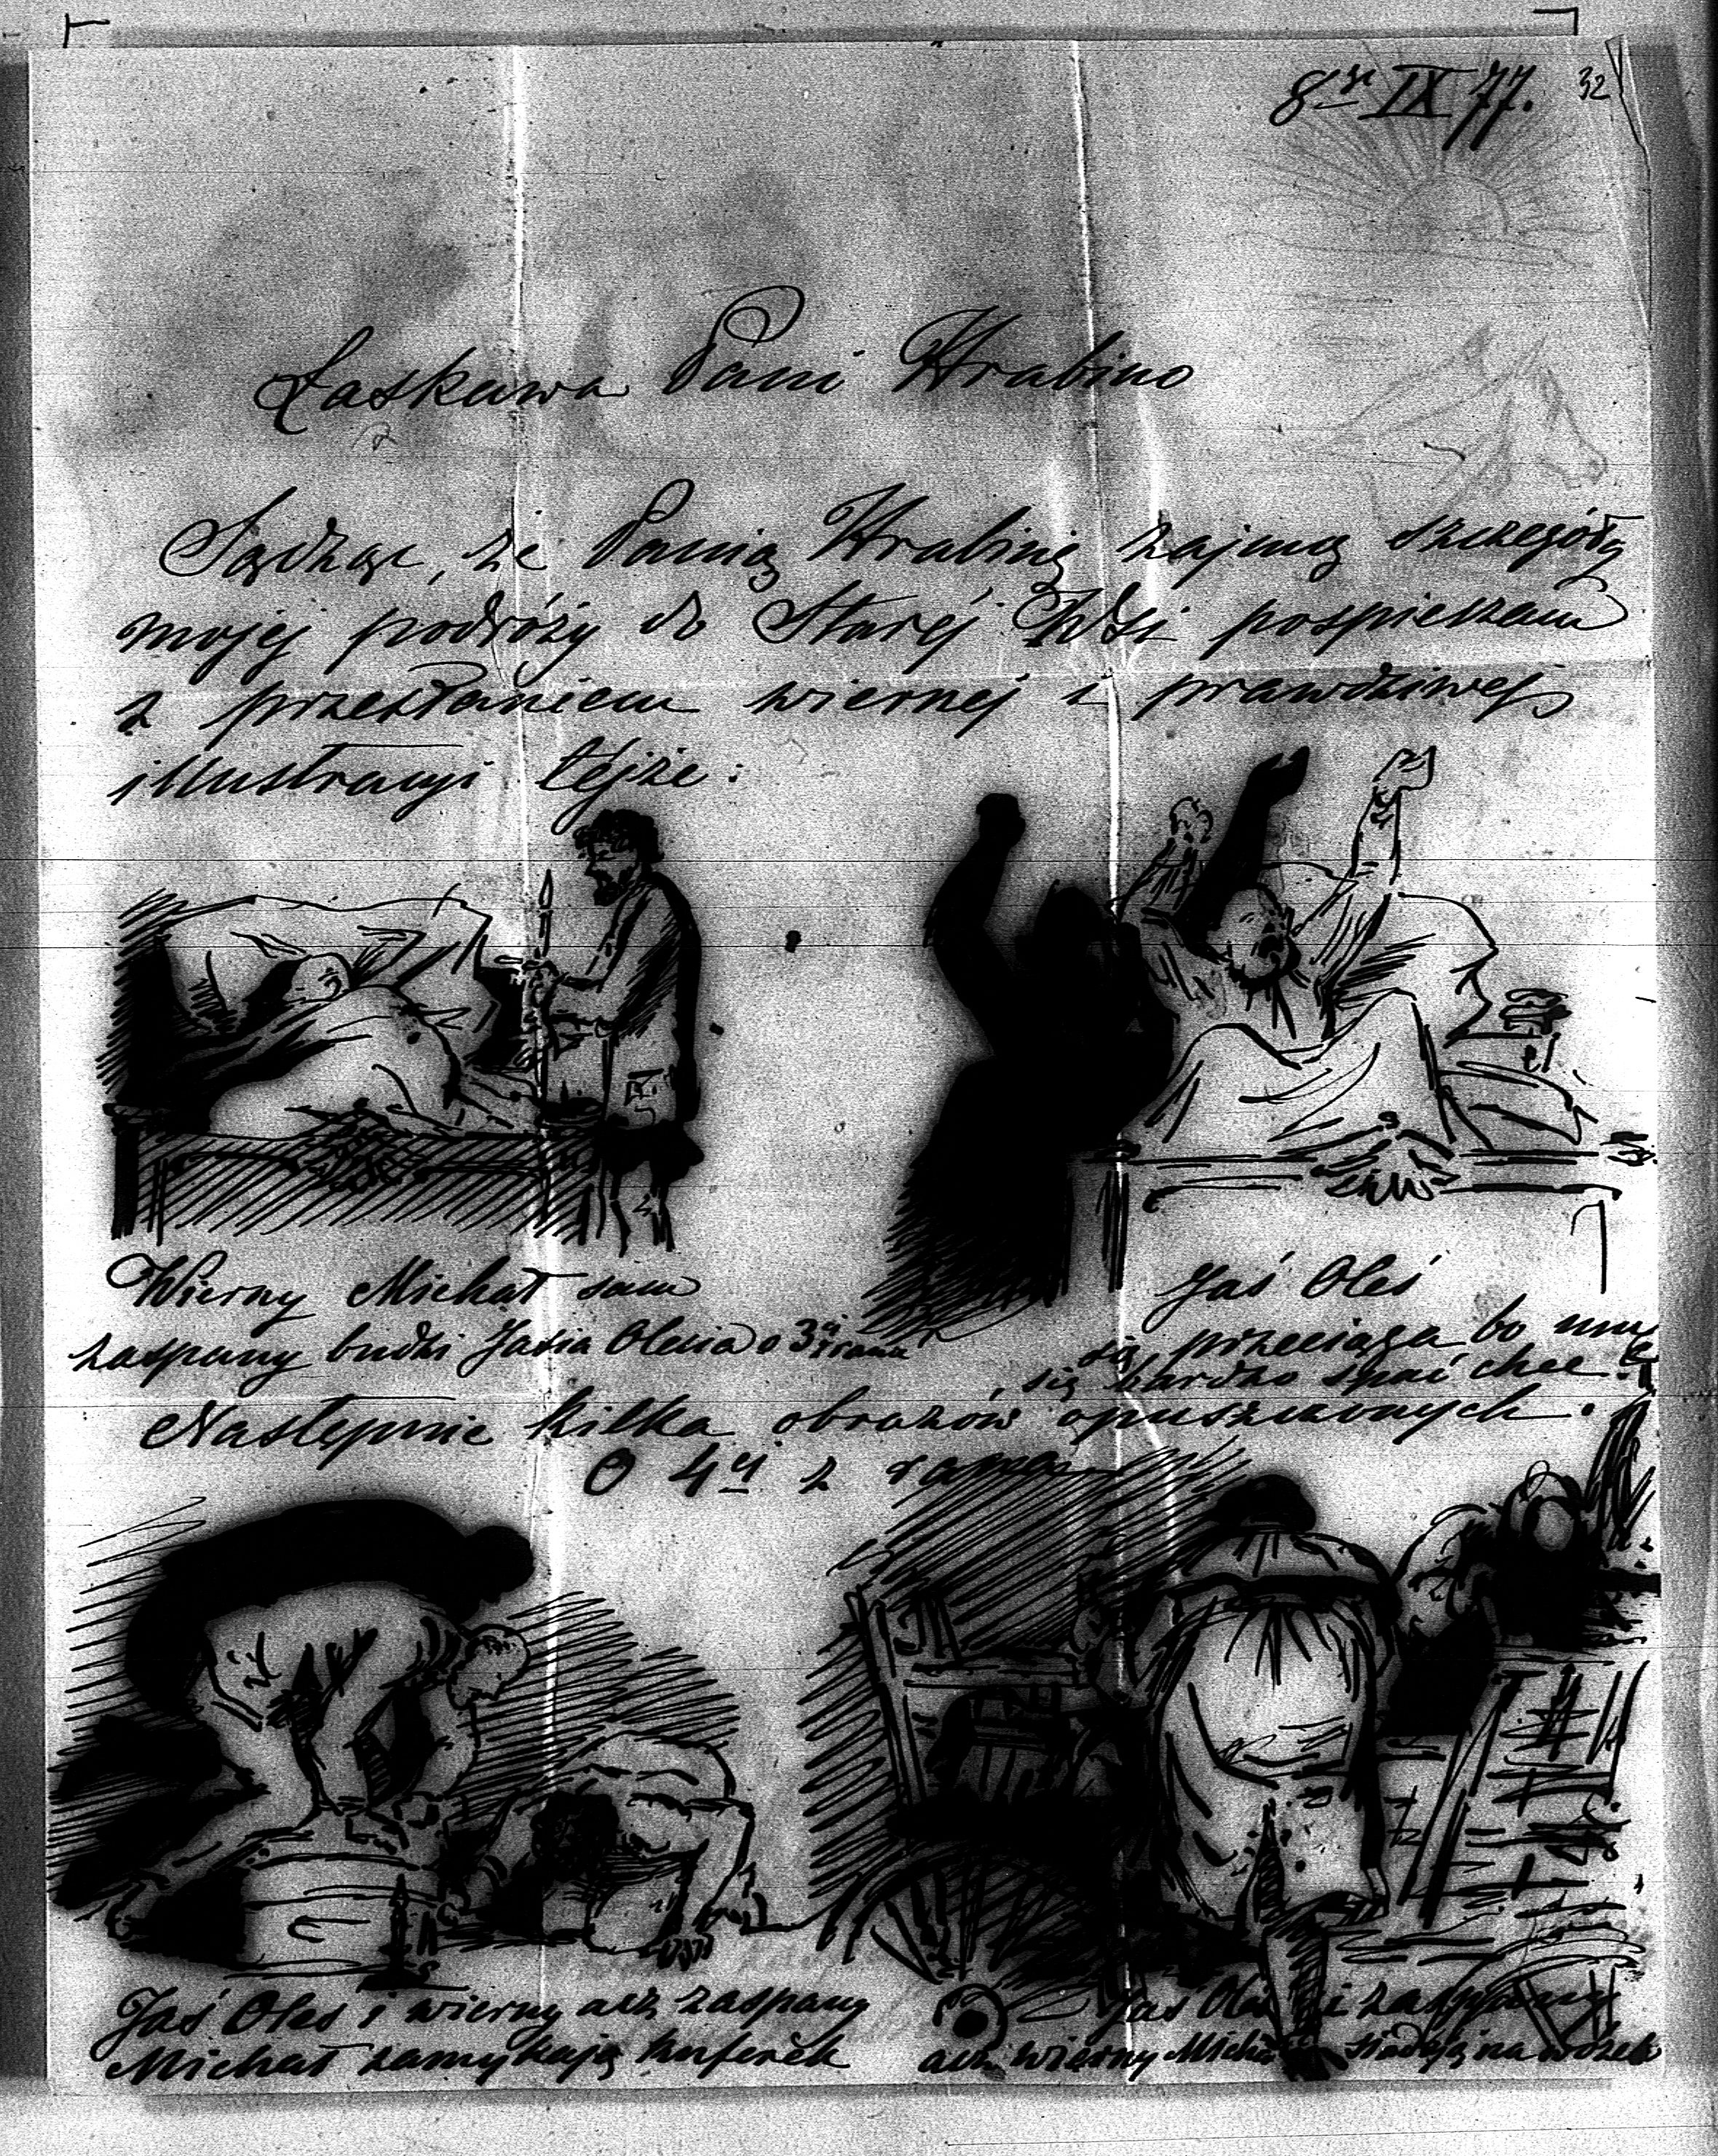 8go IX 77. 32
Łaskawa Pani Hrabino
Sądząc, że Panią Hrabinę zajmą szczegóły
mojej podróży do Starej Wsi pospieszam
z przesłaniem wiernej i prawdziwej
illustracyi tejże:
Wierny Michał sam
zaspany budzi Jasia Olesia o 3ej z rana
Jaś Oleś
się przeciąga bo mu
się bardzo spać chce
Następnie kilka obrazów opuszczonych.
O 4ej z rana
Jaś Oleś i wierny acz zaspany
Michał zamykają kuferek
Jaś Oleś i zaspany
acz wierny Michał siadają na wózek